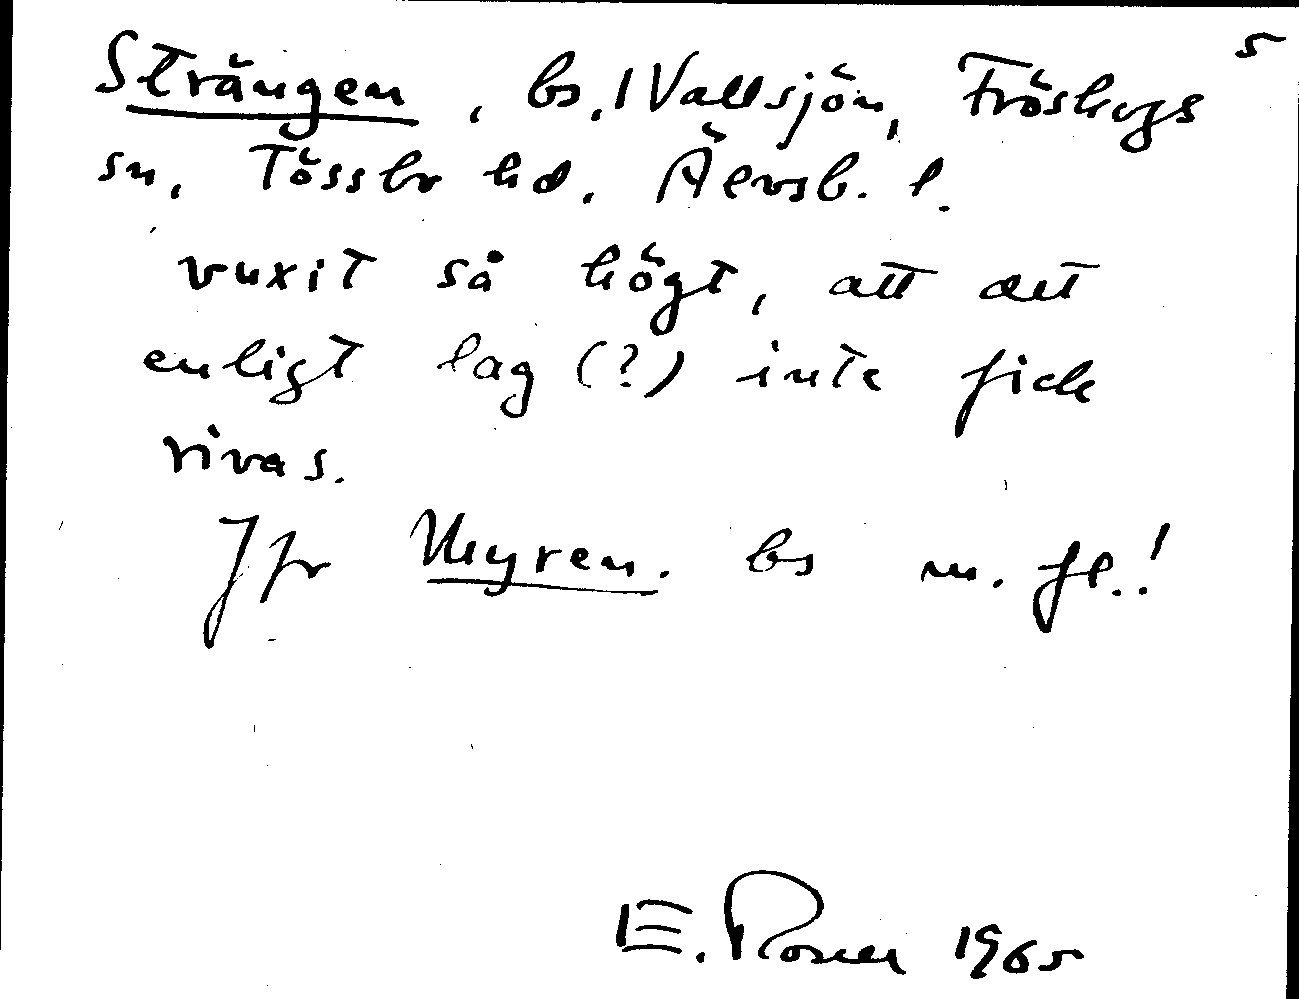 5
Strängen, bs. 1 Vallsjön, Fröskogs
sn, Tössbo hd. Älvsb. l.
vuxit så högt, att det
enligt lag (?) inte fick
rivas.
Jfr Myren. bs m. fl..!
E. Rosell 1965